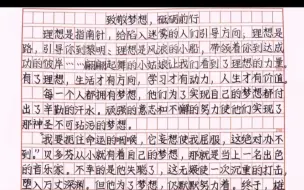 致敬梦想，砥砺前行
理想是指南针，给陷入迷雾的人们引导方向；理想是
路，引导你到黎明；理想是风浪的小船，带领着你到达成
功的彼岸……翩翩起舞的小姑娘让我们看到了理想的力量，
有了理想，生活才有方向，学习才有动力，人生才有价值。
每一个人都拥有梦想，他们为了实现自己的梦想都付
出了辛勤的汗水，顽强的意志和不懈的努力使他们实现了
那神圣不可玷污的梦想。
我要扼住命运的咽喉，它妄想使我屈服，这绝对办不
到。”贝多芬从小就有着自己的梦想，那就是当上一名出色
的音乐家，不幸的是他失聪了，这无疑使一次沉重的打击
堕入万丈深渊，但他为了梦想，仍默默努力着，终于，